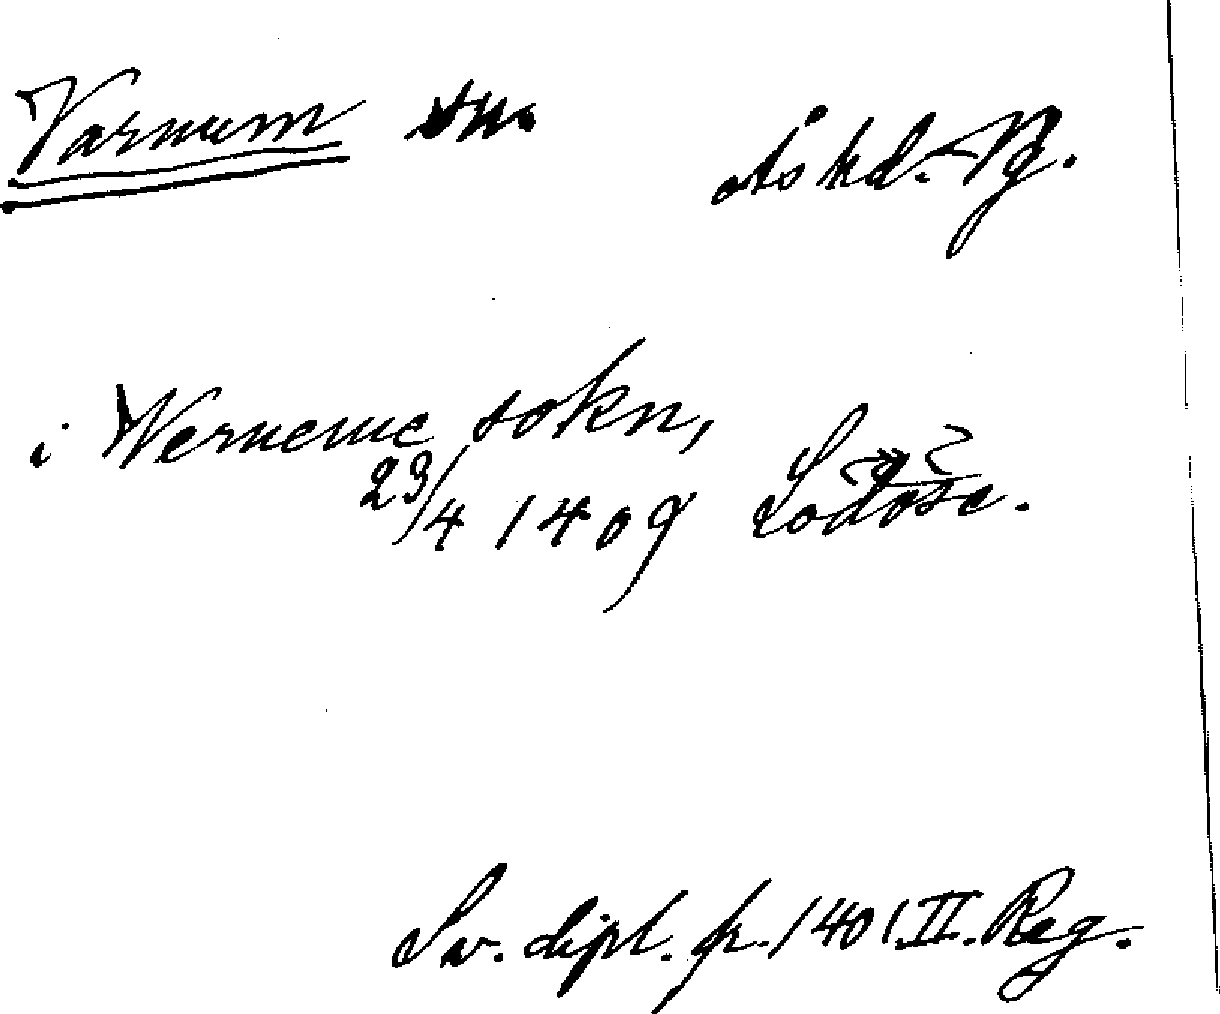 Varnum sn. Ås hd. Vg.
i Werneme sokn,
23/4 1409 Lödöse.
Sv. dipl. fr. 1401. II. Reg.